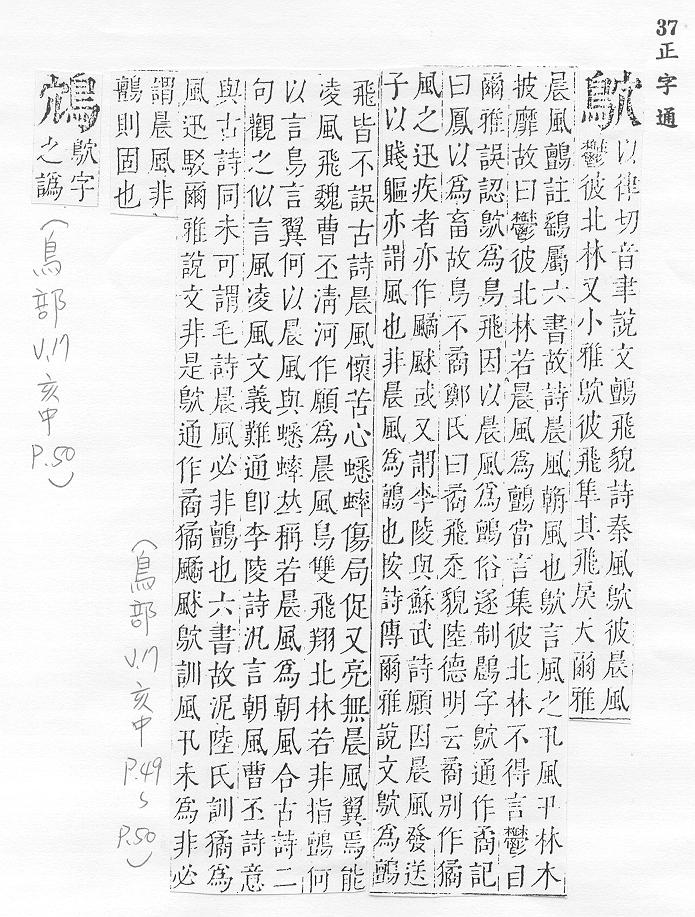 37
正字通
鴥
以律切音聿說文鸇飛貌詩秦風鴥彼晨風
鬱彼北林又小雅鴥彼飛隼其飛戾天爾雅
晨風鸇註鷂屬六書故詩晨風翰風也鴥言風之卂風卂林木
披靡故曰鬱彼北林若晨風為鸇當言集彼北林不得言鬱自
爾雅誤認鴥為鳥飛因以晨風為鸇俗遂制鷐字鴥通作矞記
曰鳳以為畜故鳥不矞鄭氏曰矞飛坙貌陸德明云矞別作獝
風之迅疾者亦作䬕颰或又謂李陵與蘇武詩願因晨風發送
子以賤軀亦謂風也非晨風為鸇也按詩傳爾雅說文鴥為鸇
飛皆不誤古詩晨風懷苦心蟋蟀傷局促又亮無晨風翼焉能
凌風飛魏曹丕淸河作願為晨風鳥雙飛翔北林若非指鸇何
以言鳥言翼何以晨風與蟋蟀竝稱若晨風為朝風合古詩二
句觀之似言風凌風文義難通卽李陵詩汎言朝風曹丕詩意
與古詩同未可謂毛詩晨風必非鸇也六書故泥陸氏訓獝為
風迅駁爾雅說文非是鴥通作矞獝䬕颰鴥訓風卂未為非必
謂晨風非
鸇則固也
(鳥部 V.17 亥中 P.49~P.50)
鴪
鴥字
之譌
(鳥部 V.17 亥中 P.50)